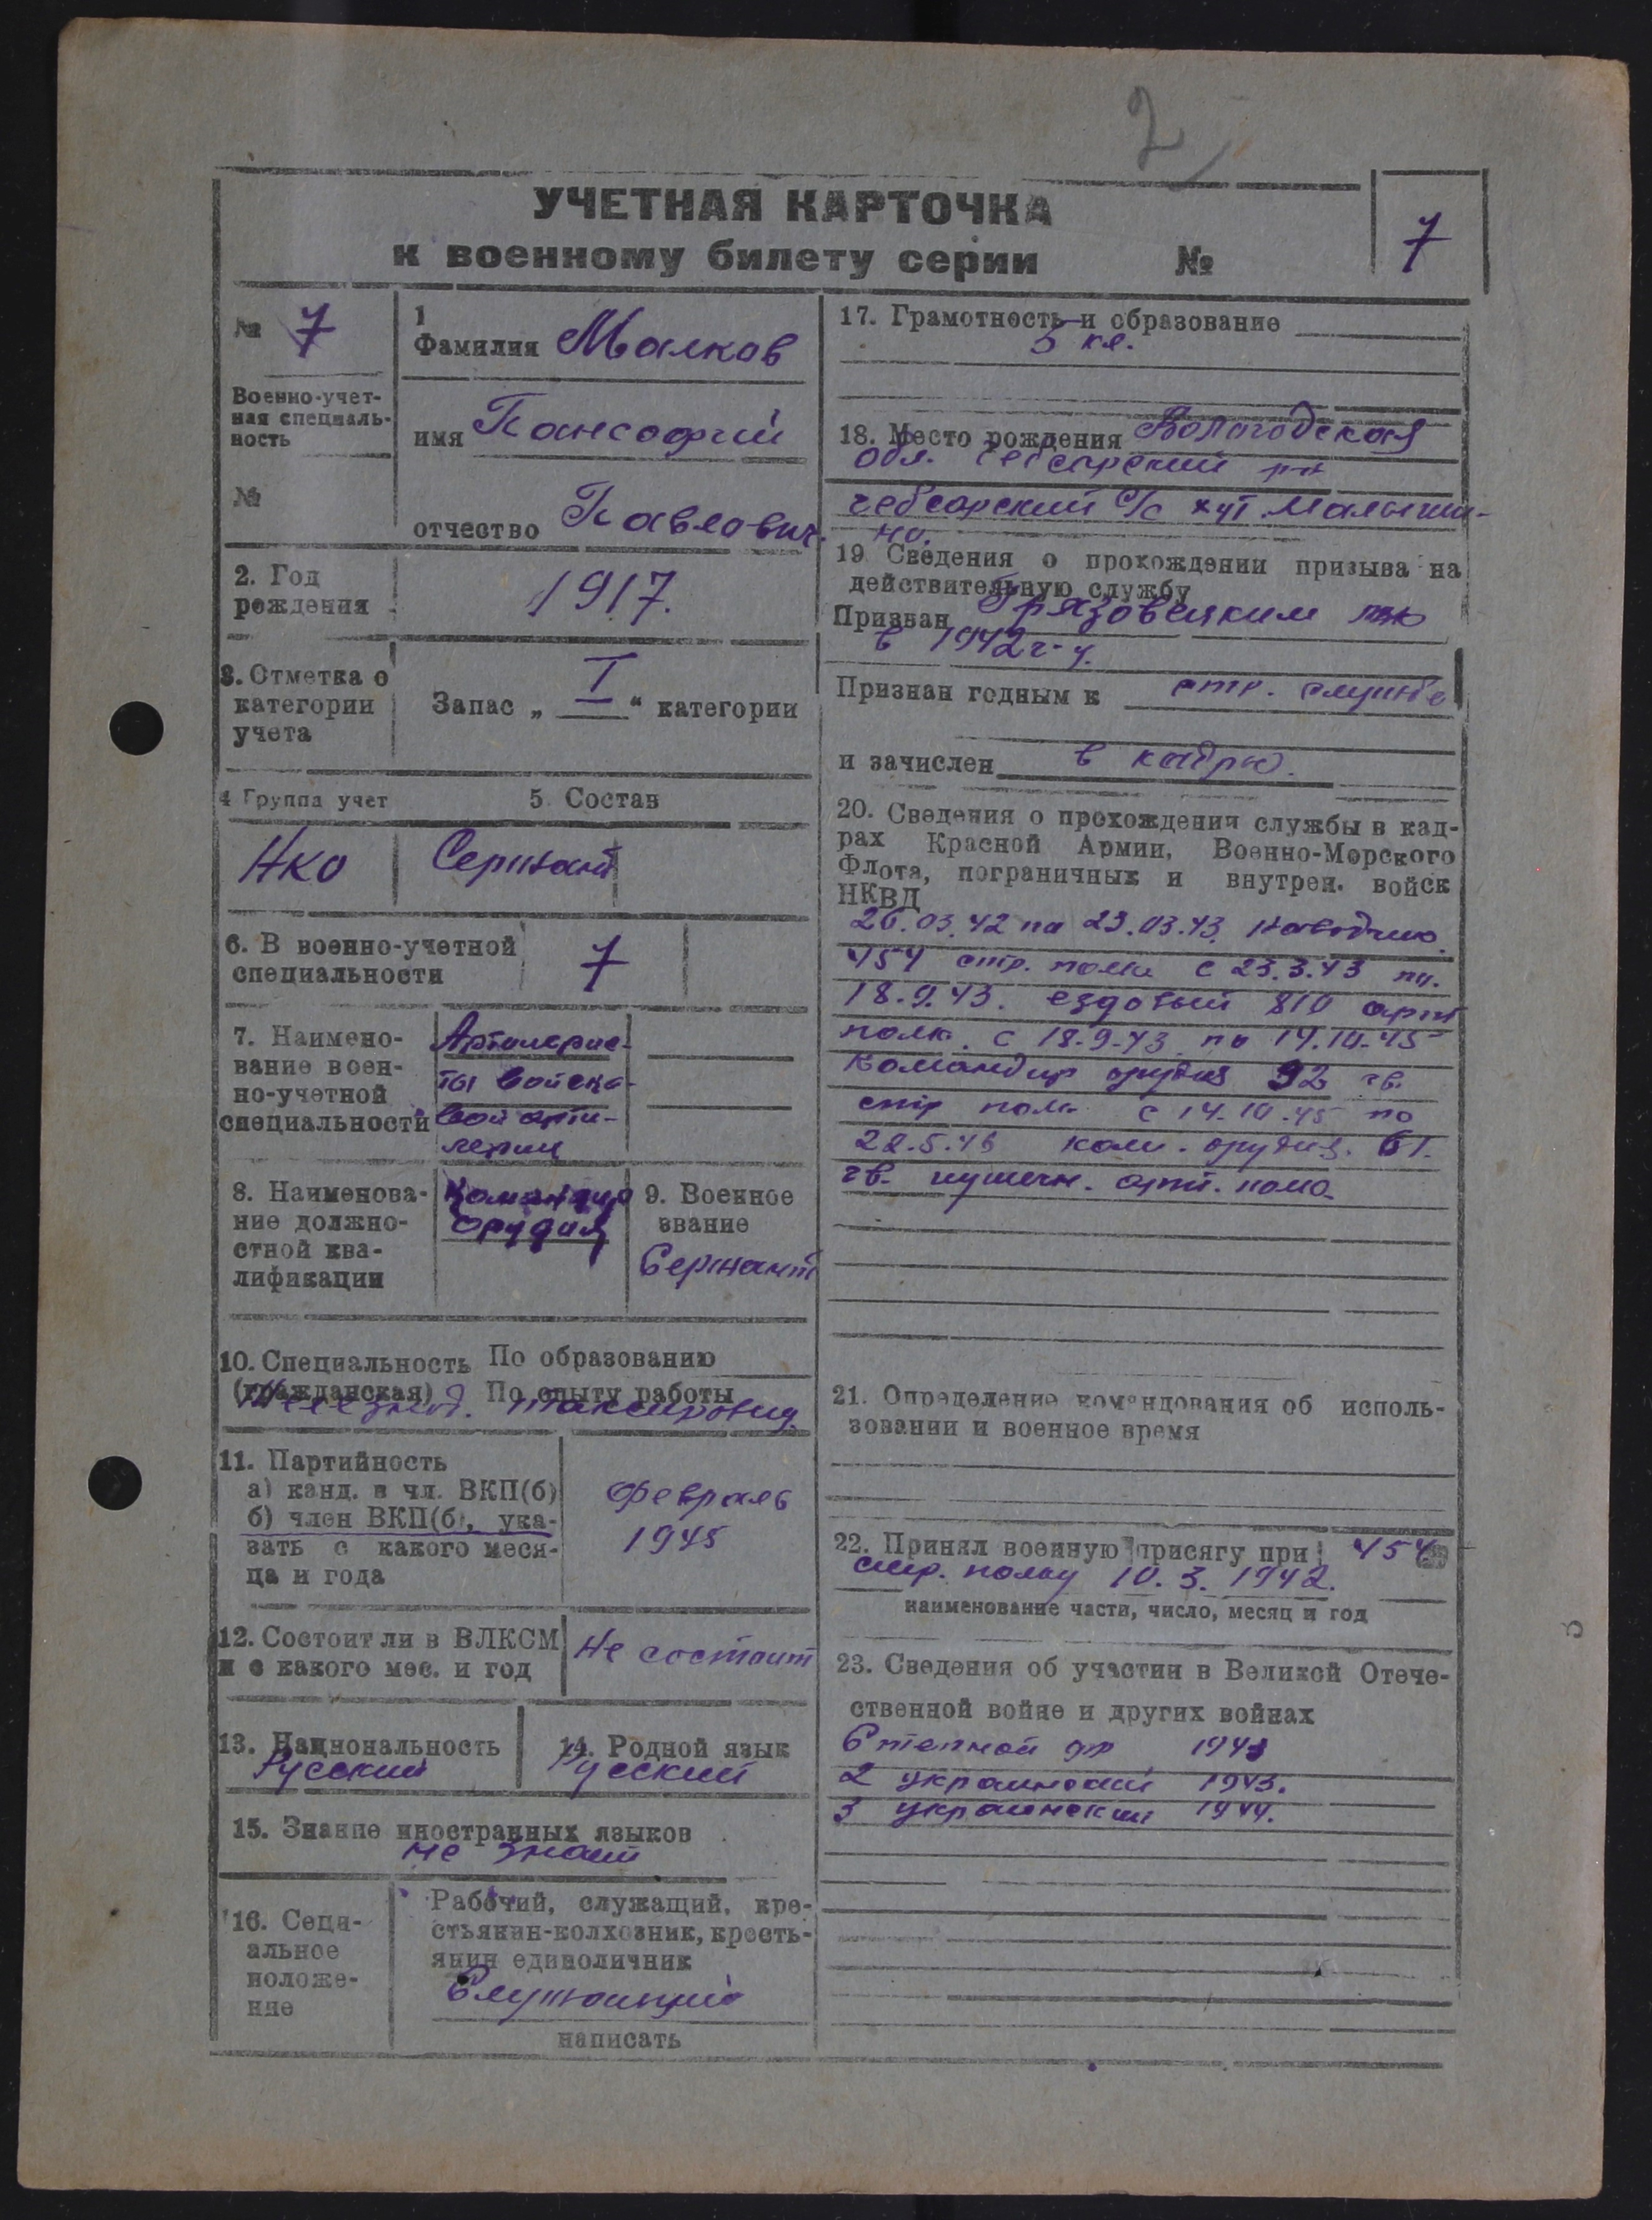 2
УЧЕТНАЯ КАРТОЧКА
к военному билету серии №
7
№ 7
Военно-учет-
ная специаль-
ность
№
1
Фамилия Малков
имя Пансофий
отчество Павлович.
2. Год
рождения
1917.
3. Отметка о
категории
учета
Запас „ I “ категории
4 Группа учет
5. Состав
НКО
Сержант
6. В военно-учетной
специальности
7
7. Наимено-
вание воен-
но-учетной
специальности
Артилерис-
ты войско-
вой арти-
лерии
8. Наименова-
ние должно-
стной ква-
лификации
Командир
орудия
9. Военное
звание
Сержант
10. Специальность
(гражданская)
По образованию
По опыту работы
11. Партийность
а) канд. в чл. ВКП(б)
б) член ВКП(б), ука-
зать с какого меся-
ца и года
февраль
1945
12. Состоит ли в ВЛКСМ
и с какого мес. и год
не состоит
13. Национальность
Русский
14. Родной язык
Русский
15. Знание иностранных языков
не знает
16. Соци-
альное
положе-
ние
Рабочий, служащий, кре-
стьянин-колхозник, кресть-
янин единоличник
Служащий
написать
17. Грамотность и образование
5 кл.
18. Место рождения Вологодская
обл. Чебсарский рн
чебсарский с/с хут. Малыгин-
но.
19 Сведения о прохождении призыва на
действительную службу
Призван Грязовецким
в 1942 г-у.
Признан годным к стр. службе
и зачислен в кадры.
20. Сведения о прохождении службы в кад-
рах Красной Армии, Военно-Морского
Флота, пограничных и внутрен. войск
НКВД
26.03.42 по 23.03.43. наводчик
454 стр. полка с 23.3.43 по
18.9.43. ездовый 810 арт
полк. с 18-9-43 по 14.10-45
командир орудия 92 гв.
стр полк с 14-10.45 по
22.5.46 ком. орудия. 61.
гв. пушечн. арт. полк
21. Определение командования об исполь-
зовании и военное время
22. Принял военную присягу при 454
стр. полку 10.3.1942.
наименование части, число, месяц и год
23. Сведения об участии в Великой Отече-
ственной войне и других войнах
Степной фр 1943
2 украинский 1943.
3 украинский 1944.
3